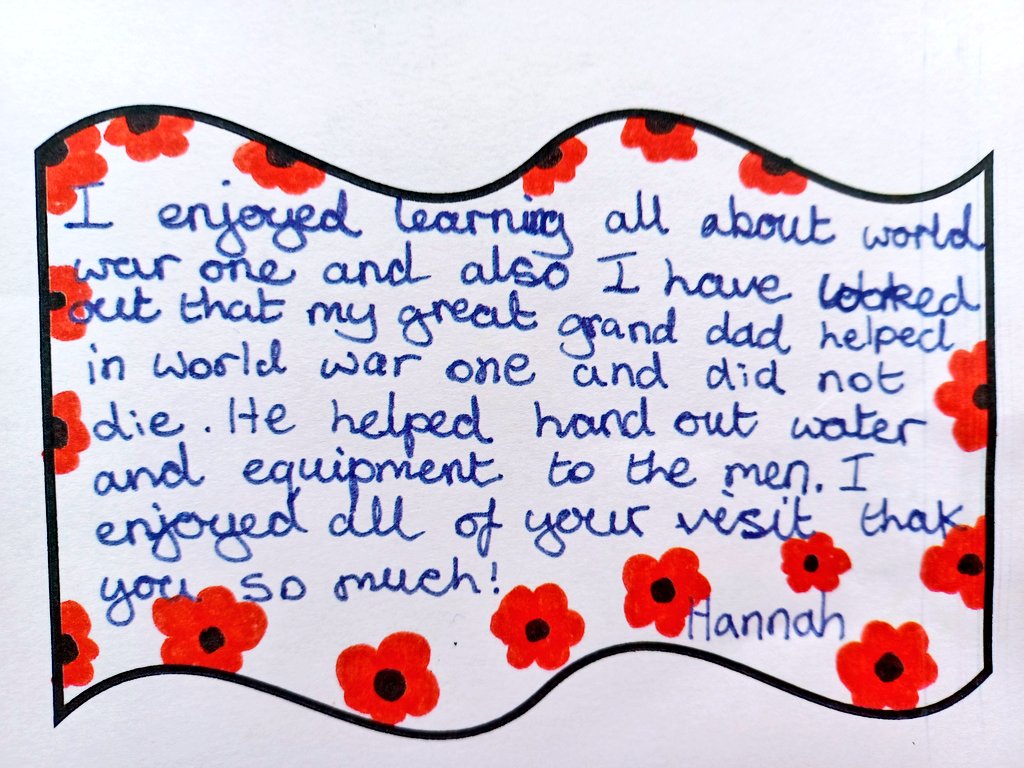 I enjoyed learning all about world
war one and also I have worked
out that my great grand dad helped
in world war one and did not
die. He helped hand out water
and equipment to the men. I
enjoyed all of your visit thak
you so much!
Hannah